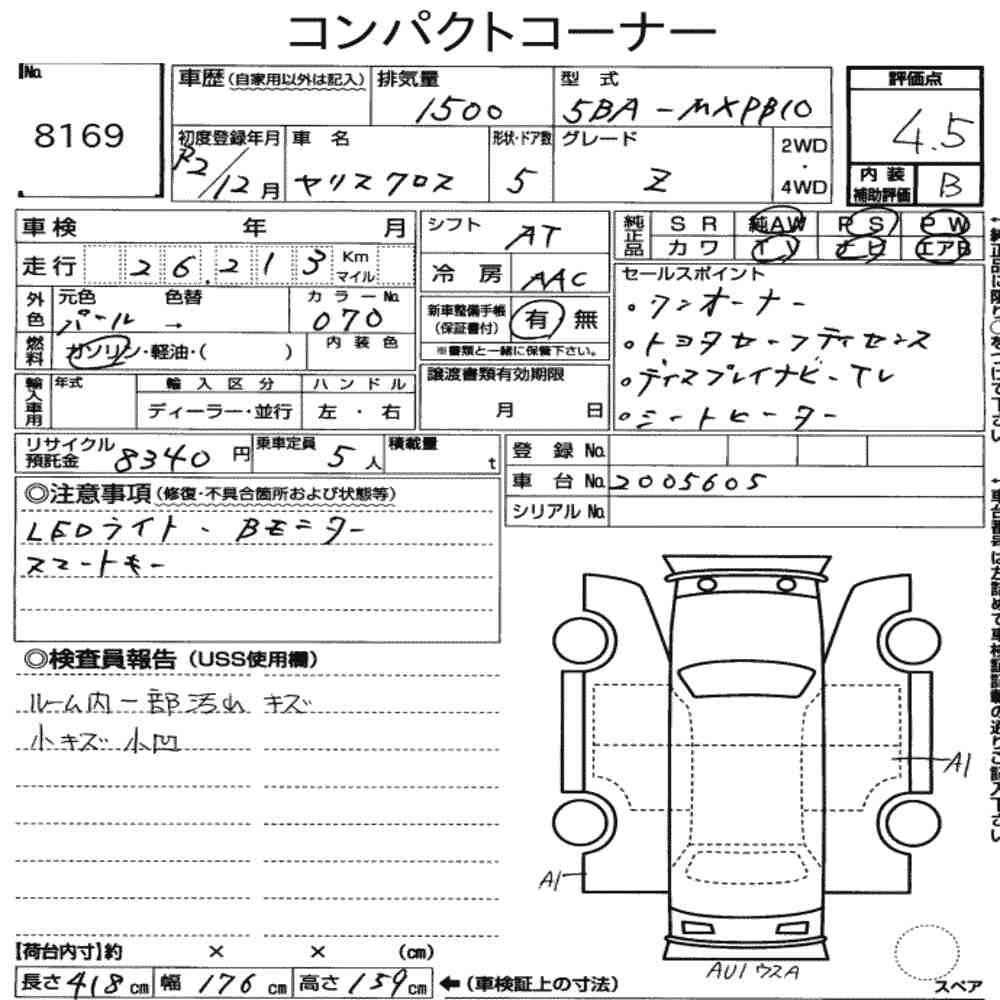 コンパクトコーナー
No.
8169
車歴(自家用以外は記入)
排気量
1500
型 式
5BA-MXPB10
評価点
4.5
初度登録年月
R2/12月
車 名
ヤリスクロス
形状・ドア数
5
グレード
Z
2WD
・
4WD
内 装
補助評価
B
車検 年 月
走行 26.213 Km
マイル
外色
元色 色替
パール →
カラーNo.
070
燃料
ガソリン・軽油・( )
内 装 色
輸入車用
年式
輸 入 区 分
ディーラー・並行
ハ ン ド ル
左 ・ 右
シフト
AT
冷 房
AAC
新車整備手帳
(保証書付)
有 無
※書類と一緒に保管下さい。
譲渡書類有効期限
月 日
純正品
S R 純AW P S P W
カ ワ T V ナ ビ エアB
セールスポイント
・ワンオーナー
・トヨタセーフティセンス
・ディスプレイナビ-TV
・シートヒーター
リサイクル
預託金
8340 円
乗車定員
5 人
積載量
t
登 録 No.
車 台 No. 2005605
シリアル No.
◎注意事項(修復・不具合箇所および状態等)
LEDライト・Bモニター
スマートキー
◎検査員報告(USS使用欄)
ルーム内一部汚れ キズ
小キズ 小凹
A1
A1
AU1 ウスA
【荷台内寸】約 × × (cm)
長さ 418 cm 幅 176 cm 高さ 159 cm ←(車検証上の寸法)
スペア
↑純正品に限り○をつけて下さい
↑車台番号は左詰めで車検証記載の通りご記入下さい